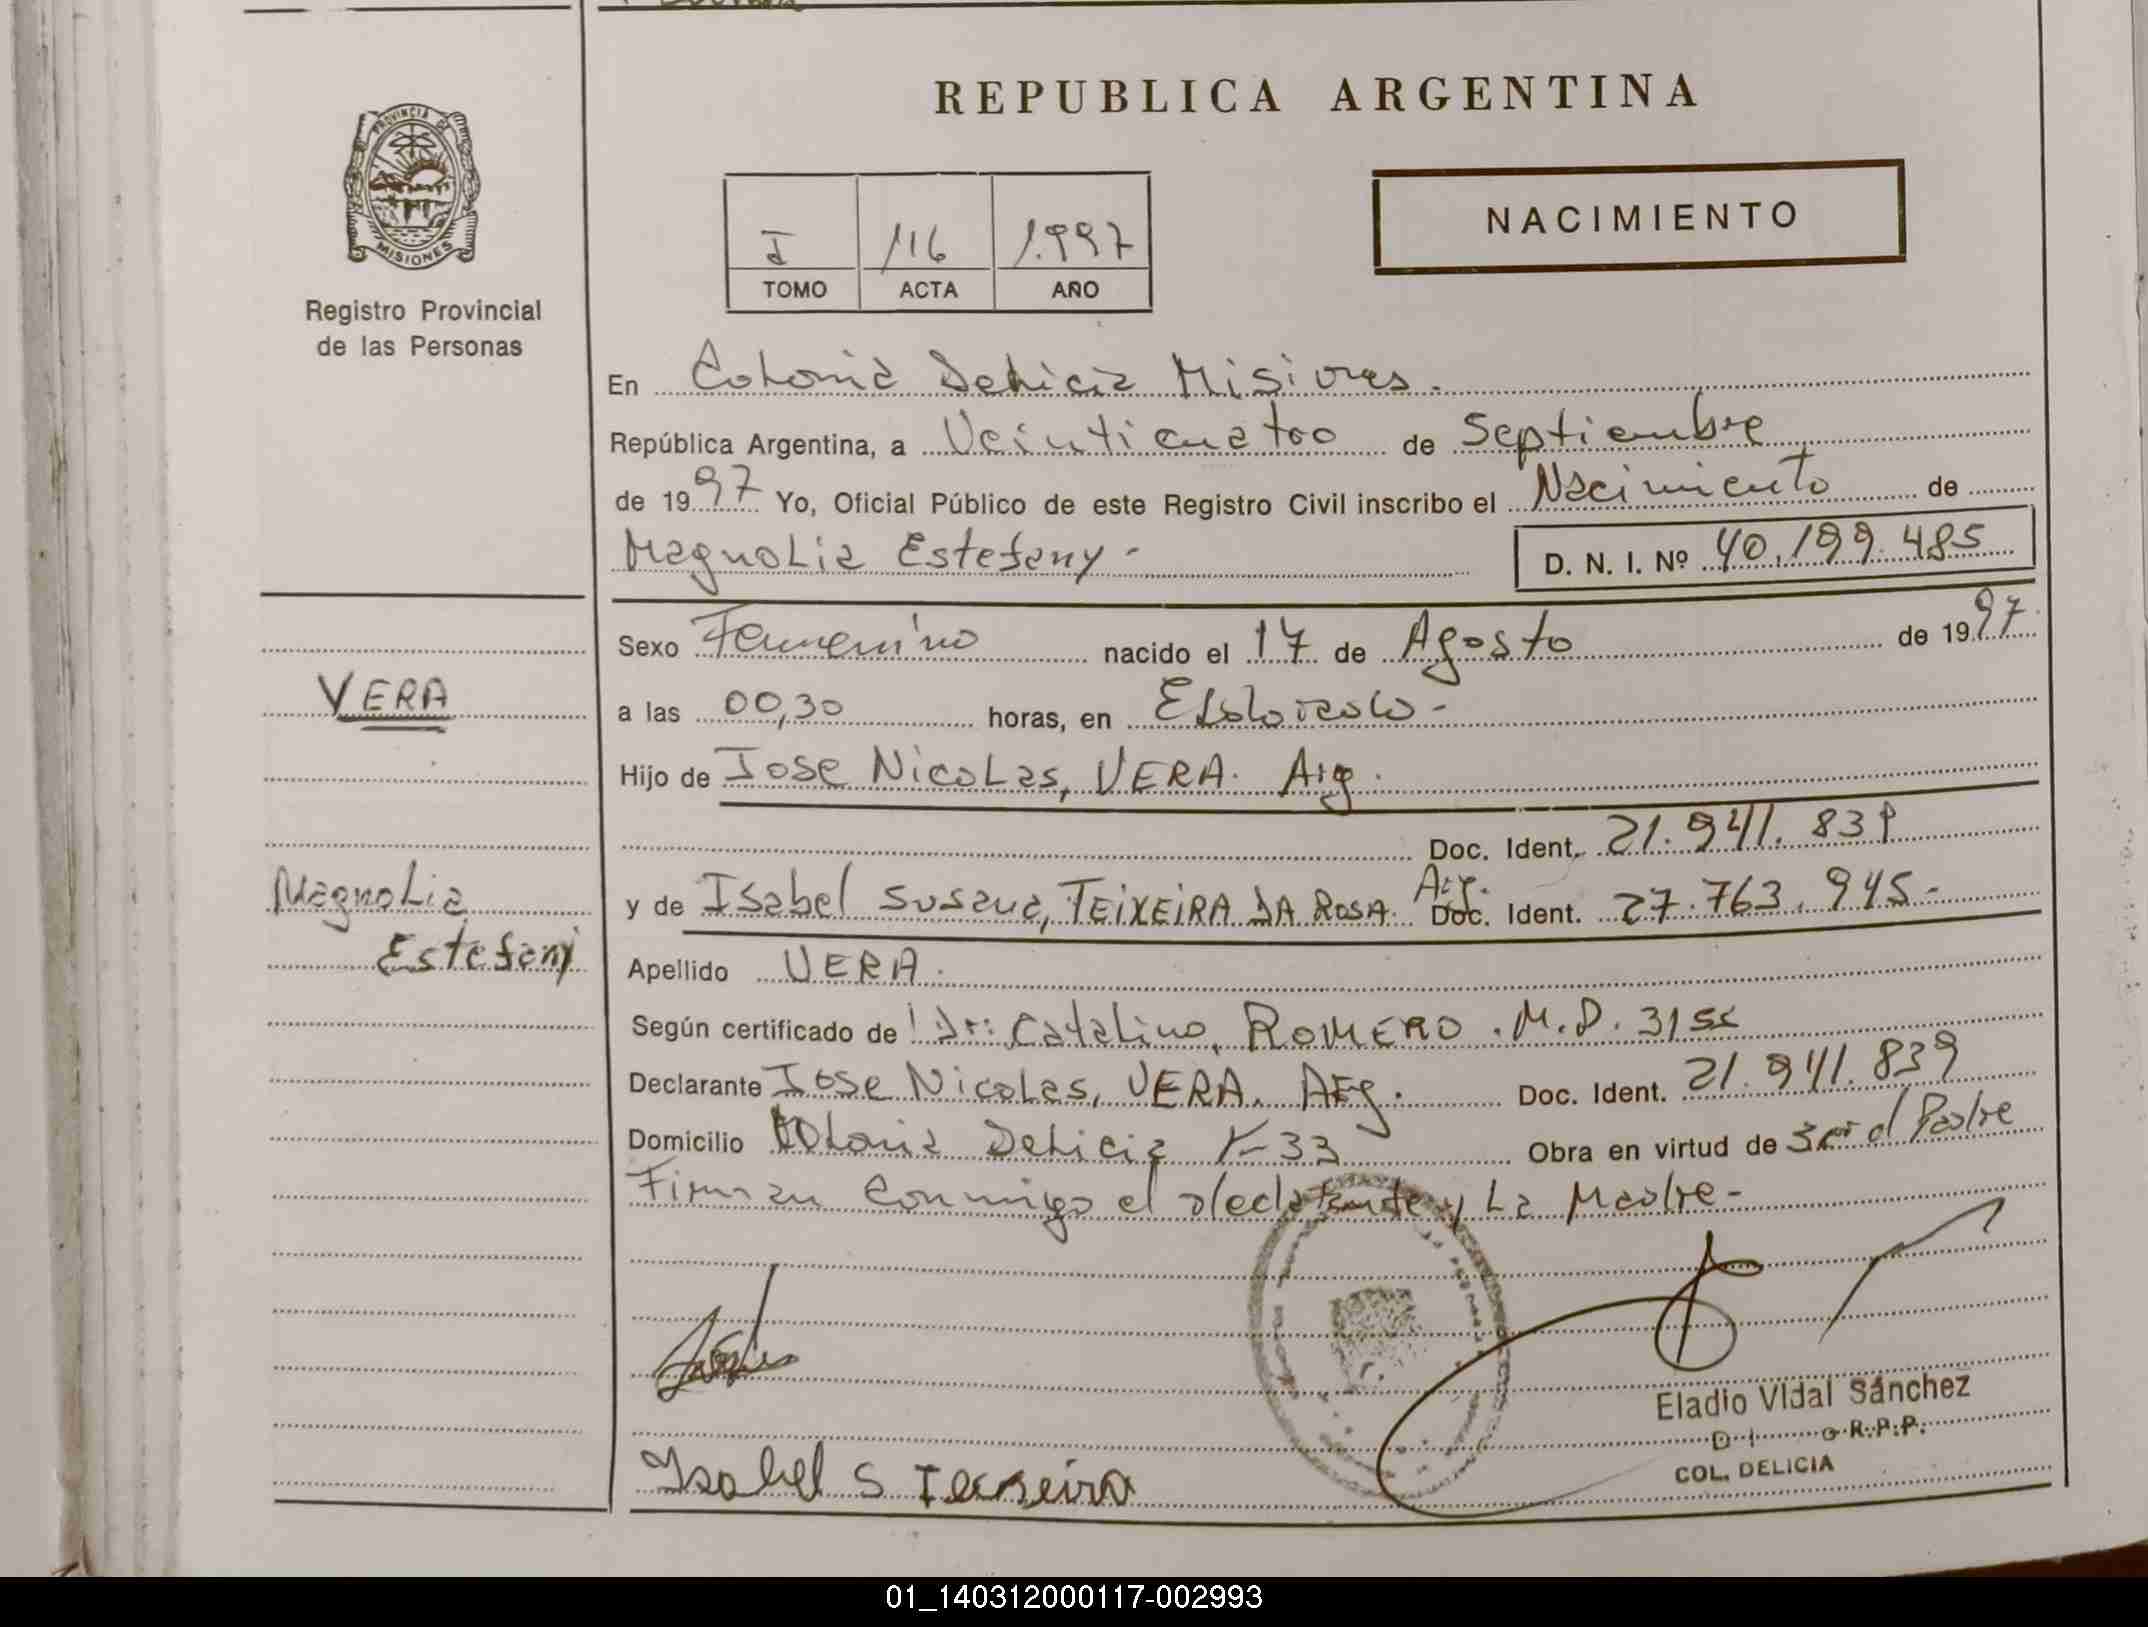 REPUBLICA ARGENTINA
PROVINCIA DE
MISIONES
Registro Provincial
de las Personas
I 116 1.997
TOMO ACTA AÑO
NACIMIENTO
En Colonia Delicia Misiones.
República Argentina, a Veinticuatro de Septiembre
de 1997 Yo, Oficial Público de este Registro Civil inscribo el Nacimiento de
Magnolia Estefany - D. N. I. Nº 40.199.485
Sexo Femenino nacido el 17 de Agosto de 1997.
VERA
a las 00,30 horas, en Eldorado -
Hijo de Jose Nicolas, VERA. Arg.
Doc. Ident. 21.941.839
Magnolia
Estefany
y de Isabel Susana, TEIXEIRA DA ROSA. Arg. Doc. Ident. 27.763.945-
Apellido VERA.
Según certificado de Dr: Catalino, ROMERO. M.P. 3155
Declarante Jose Nicolas, VERA. Arg. Doc. Ident. 21.941.839
Domicilio Colonia Delicia K-33 Obra en virtud de Ser el Padre
Firman conmigo el declarante y La Madre -
Isabel S Teixeira
Eladio Vidal Sánchez
R.P.P.
COL. DELICIA
01_140312000117-002993